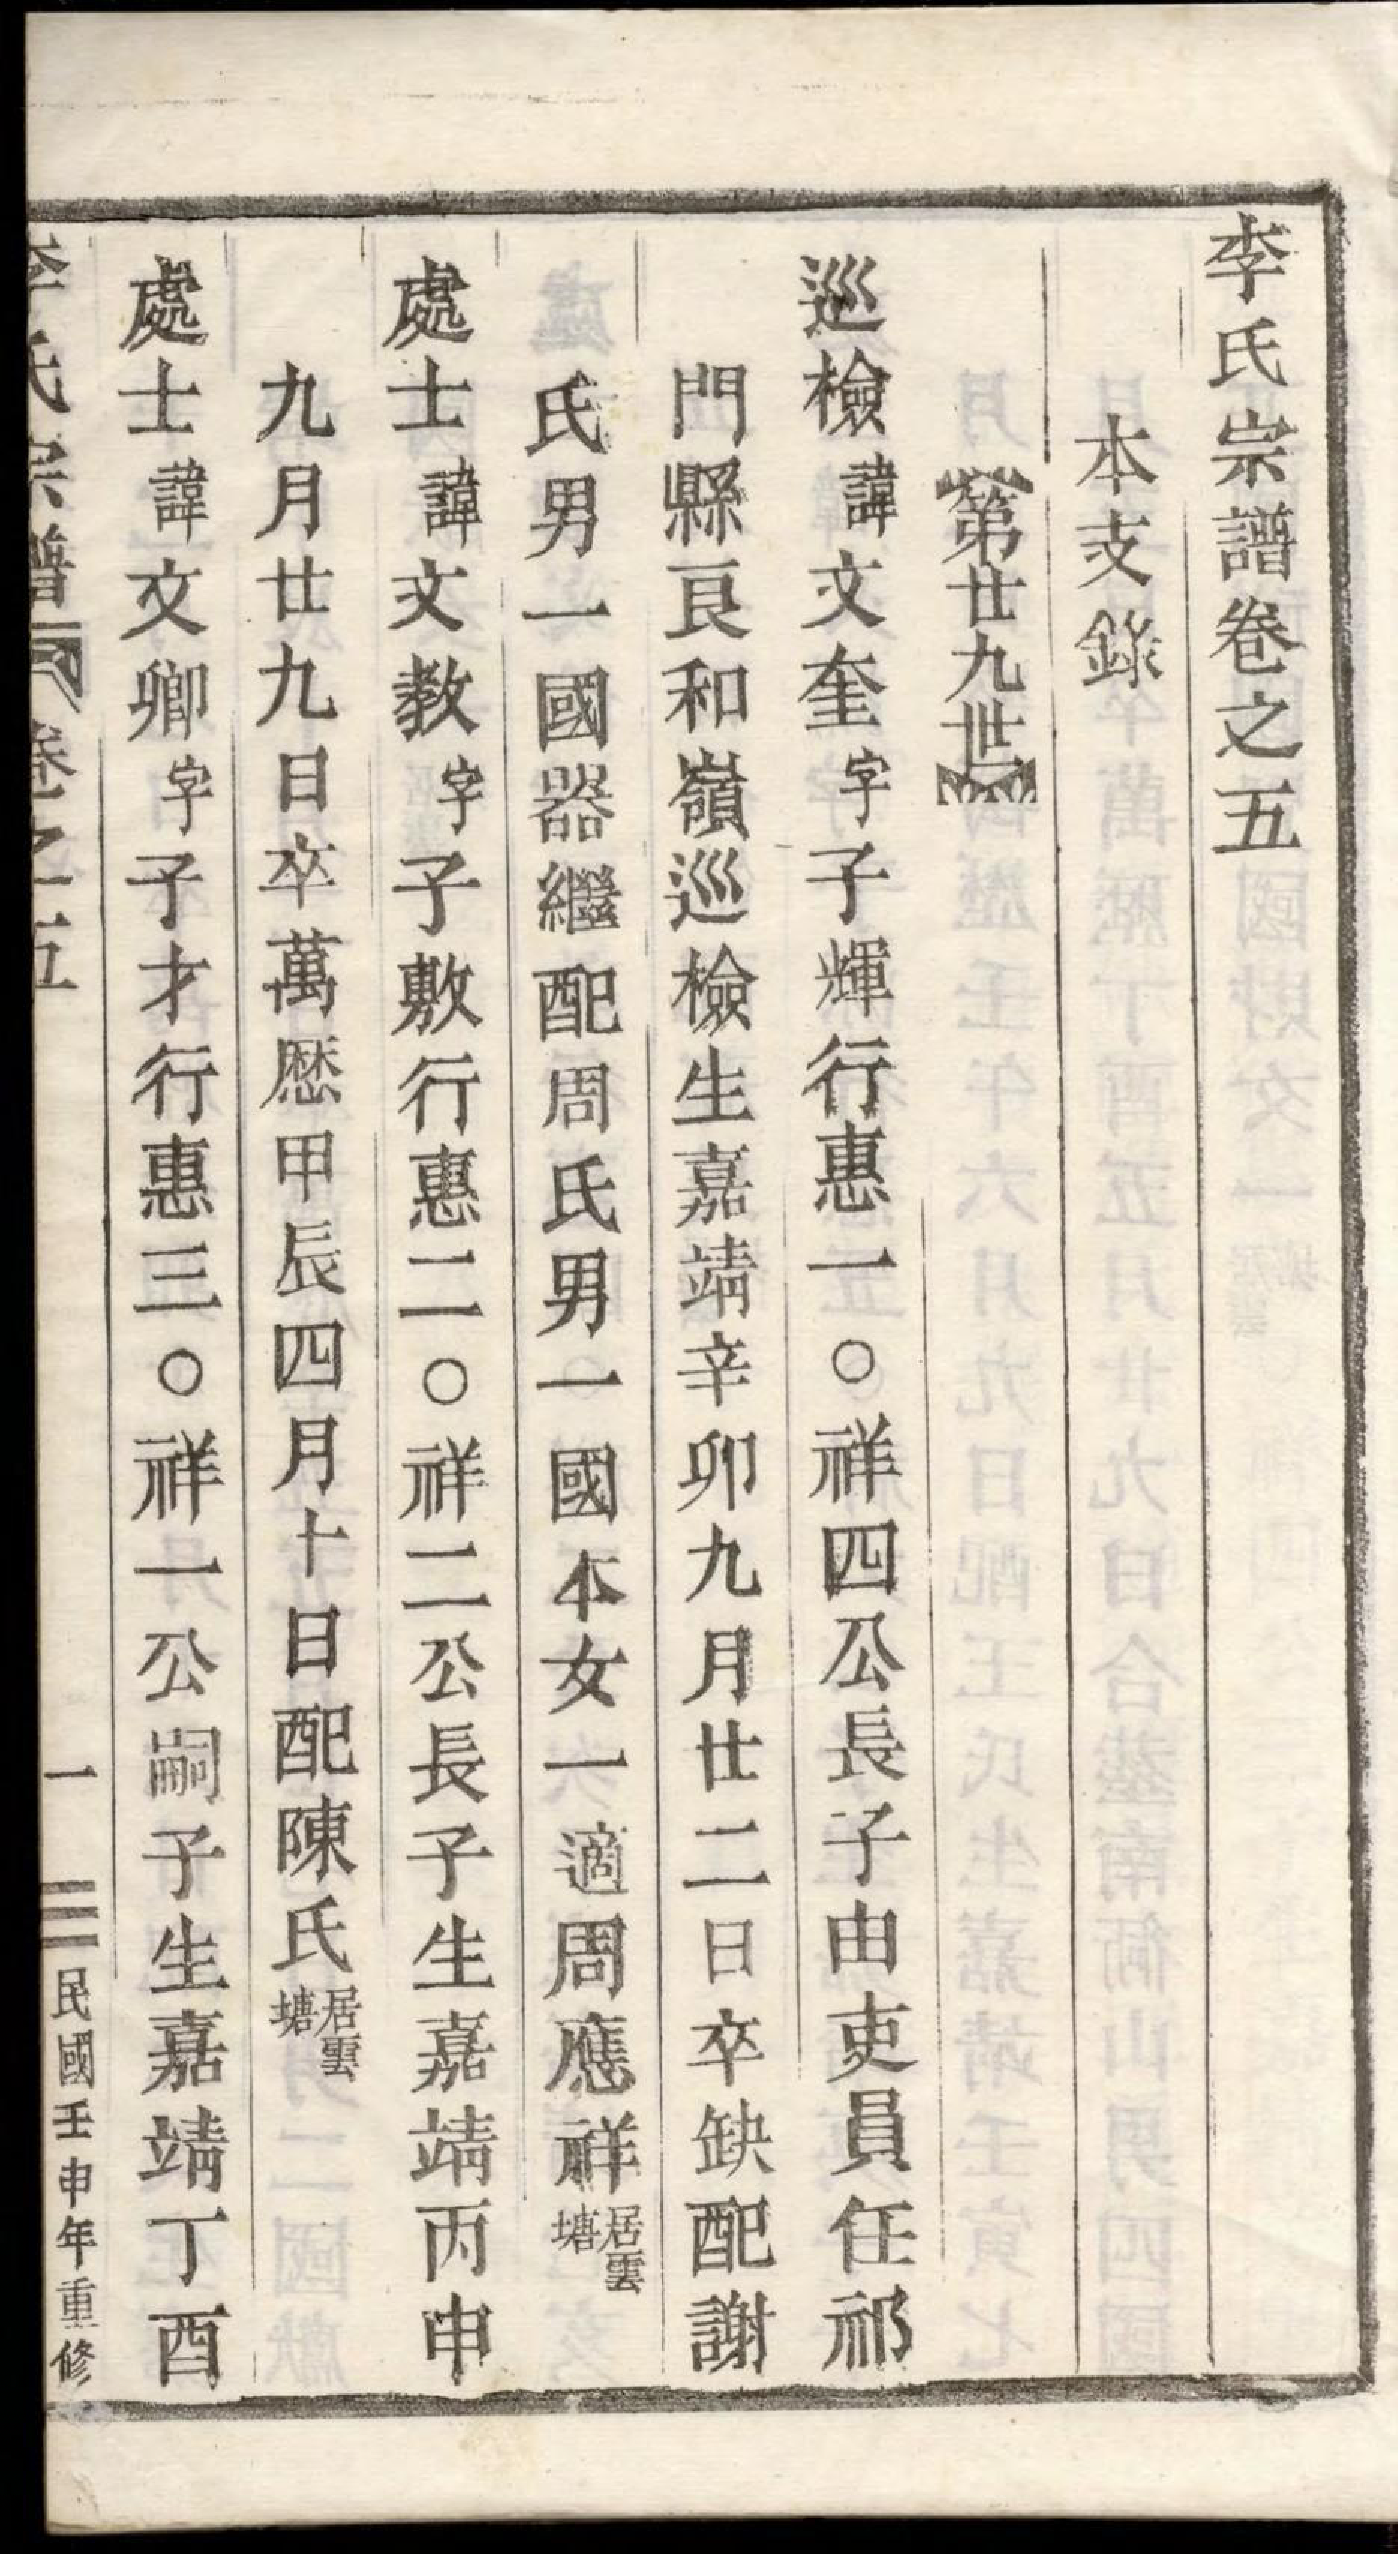 李氏宗譜卷之五
本支錄
第廿九世
巡檢諱文奎字子輝行惠一○祥四公長子由吏員任祁
門縣良和嶺巡檢生嘉靖辛卯九月廿二日卒缺配謝
氏男一國器繼配周氏男一國本女一適周應祥居雲塘
處士諱文教字子敷行惠二○祥二公長子生嘉靖丙申
九月廿九日卒萬歷甲辰四月十日配陳氏居雲塘
處士諱文卿字子才行惠三○祥一公嗣子生嘉靖丁酉
李氏宗譜 卷之五 一 民國壬申年重修